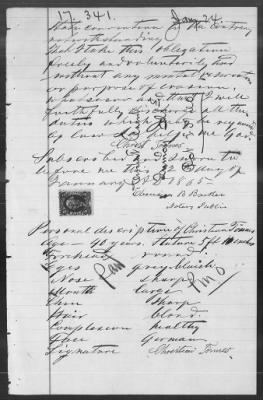 17 341 Jany 24
State convention to the contrary
notwithstanding
That I take this obligation
freely and voluntarily and
without any mental reservation
or purpose of evasion
whatsoever and that I will
faithfully discharge all the
duties which may be required
by law So help me God
Subscribed and Sworn to
before me this 12 day of
January A.D. 1865
Notary Public
Personal description of Christian
age 40 years Stature 5 ft 10 inches
Forehead round
Eyes grey bluish
Nose sharp
Mouth large
Chin sharp
Hair blond
Complexion healthy
Face German
Signature Christian